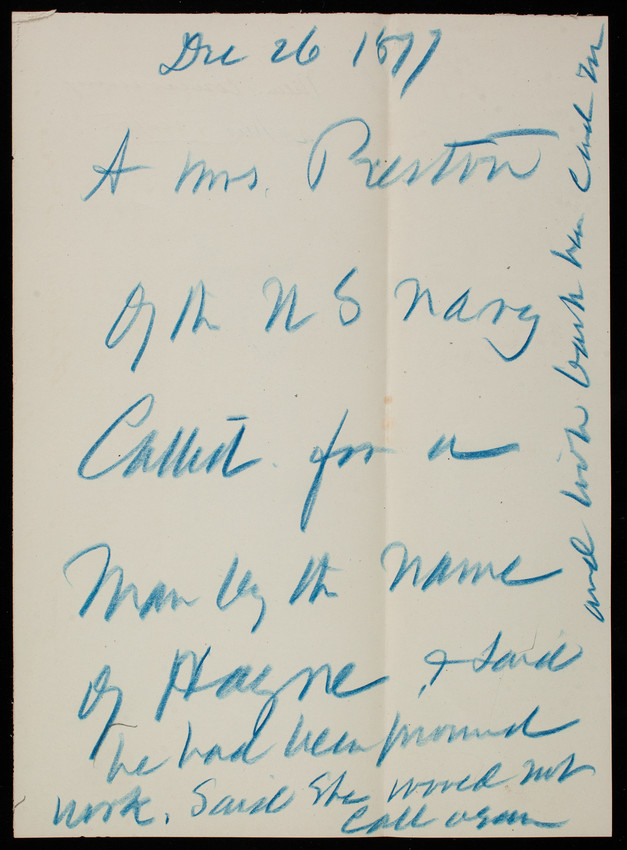 Dec 26 1877
A Mrs. Preston
Of th U S Navy
Called for a
Man by th name
of Hayne, & Said
he had been promised
work. Said She would not
Call again
and took back her card in